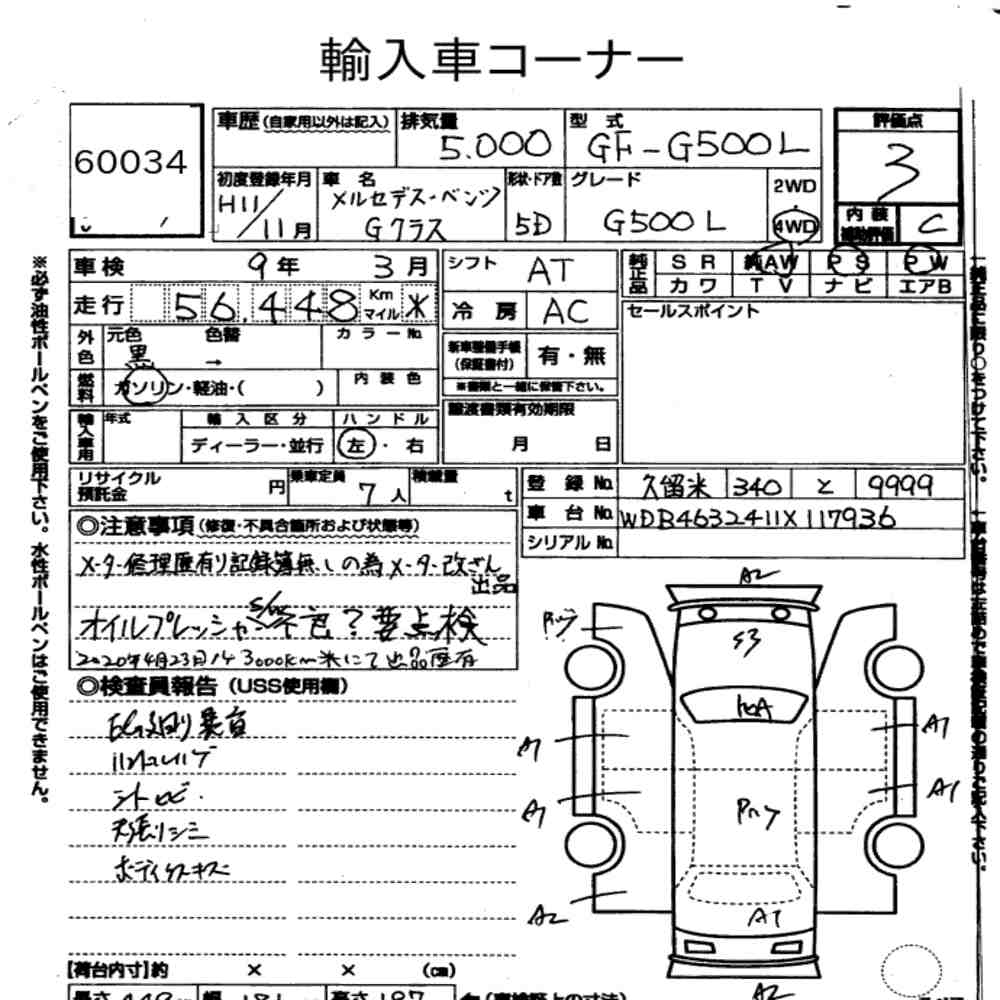 輸入車コーナー
60034
車歴 (自家用以外は記入)
排気量 5.000
型式 GF-G500L
評価点 3
初度登録年月 H11/11月
車名 メルセデス・ベンツ Gクラス
形状・ドア数 5D
グレード G500L
2WD
・
4WD
内装補助評価 C
車検 9年 3月
シフト AT
純正品 SR 純AW PS PW
カワ TV ナビ エアB
走行 56.448 Km マイル ※
冷房 AC
セールスポイント
外色 元色 黒 色替 →
カラーNo.
新車整備手帳(保証書付) 有・無
※書類と一緒に保管下さい。
燃料 ガソリン・軽油・( )
内装色
輸入車用 年式
輸入区分 ディーラー・並行
ハンドル 左・右
譲渡書類有効期限
月 日
リサイクル預託金 円
乗車定員 7人
積載量 t
登録No. 久留米 340 と 9999
車台No. WDB4632411X117936
シリアルNo.
◎注意事項 (修復・不具合箇所および状態等)
メーター修理歴有り記録簿無しの為メーター改ざん
出品
オイルプレッシャー 不良?要点検
2020年4月23日143000km※にて出品歴有
◎検査員報告 (USS使用欄)
ハンドルハゲ
シートヨゴレ
天張りシミ
A2
S3
A1
A1
A1
A1
A2
A1
A2
【荷台内寸】約 × × (cm)
※必ず油性ボールペンをご使用下さい。水性ボールペンはご使用できません。